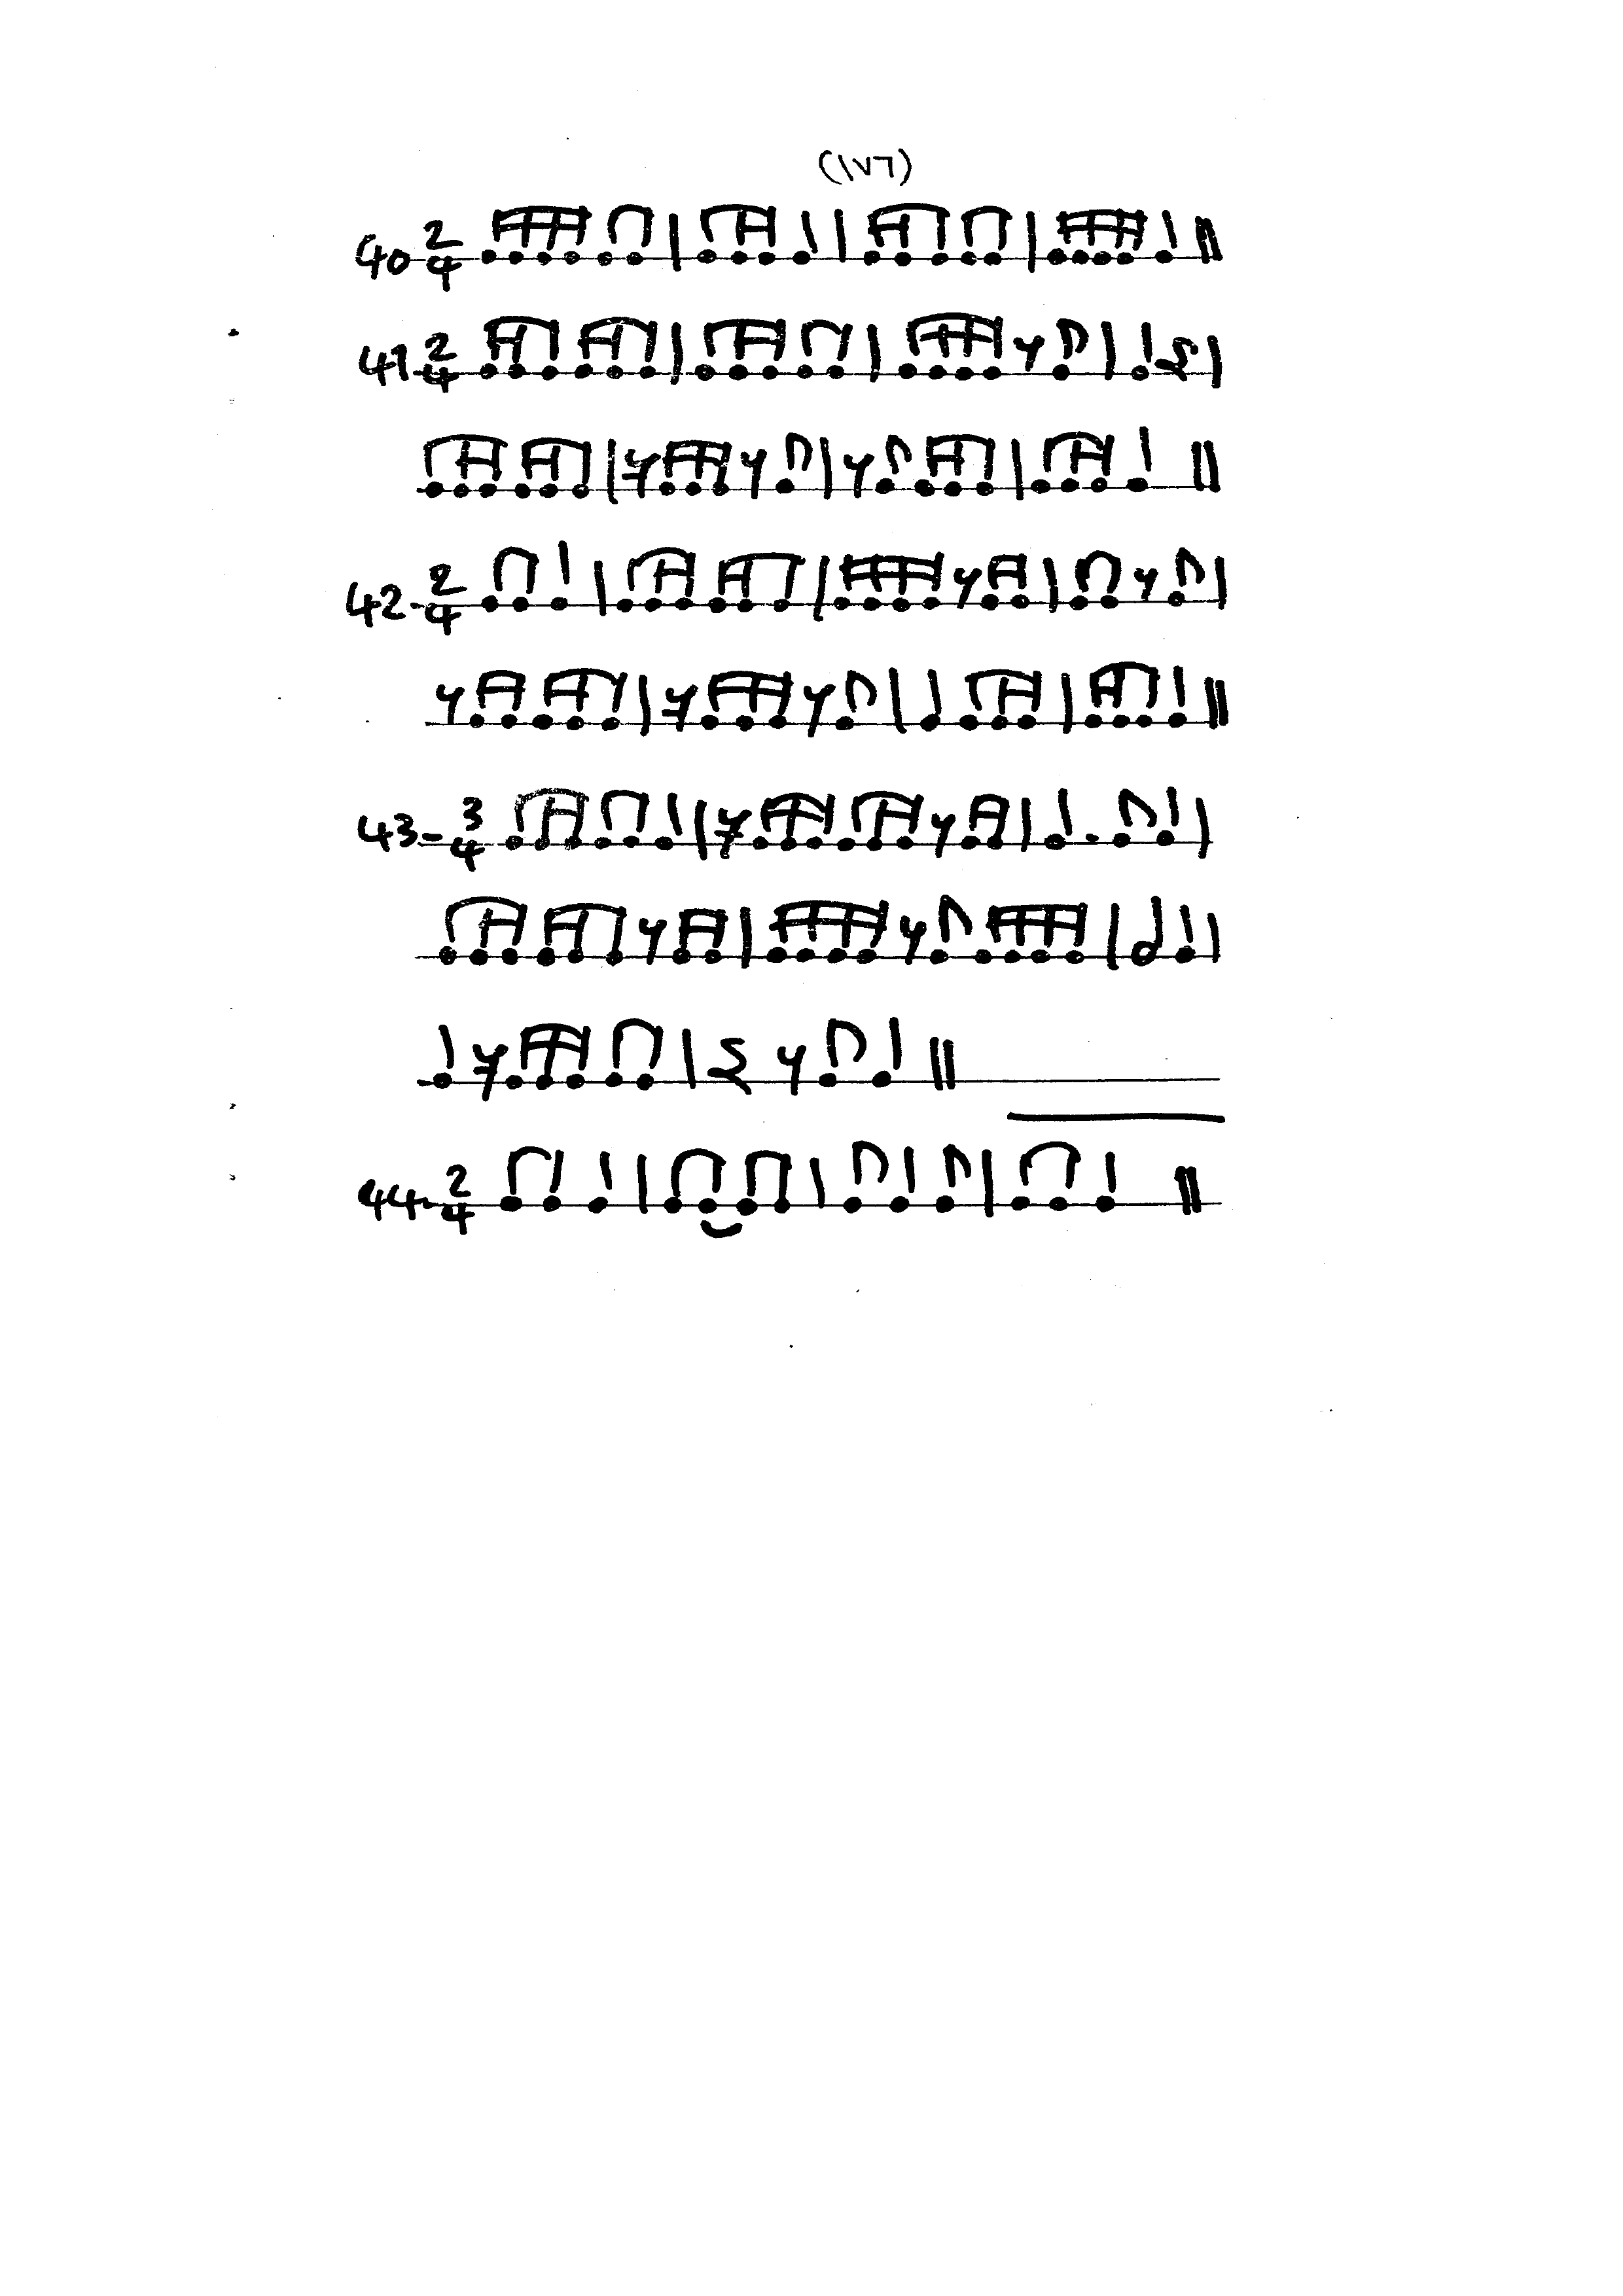 (١٧٦)
40 2/4
41 2/4
42- 2/4
43- 3/4
44- 2/4